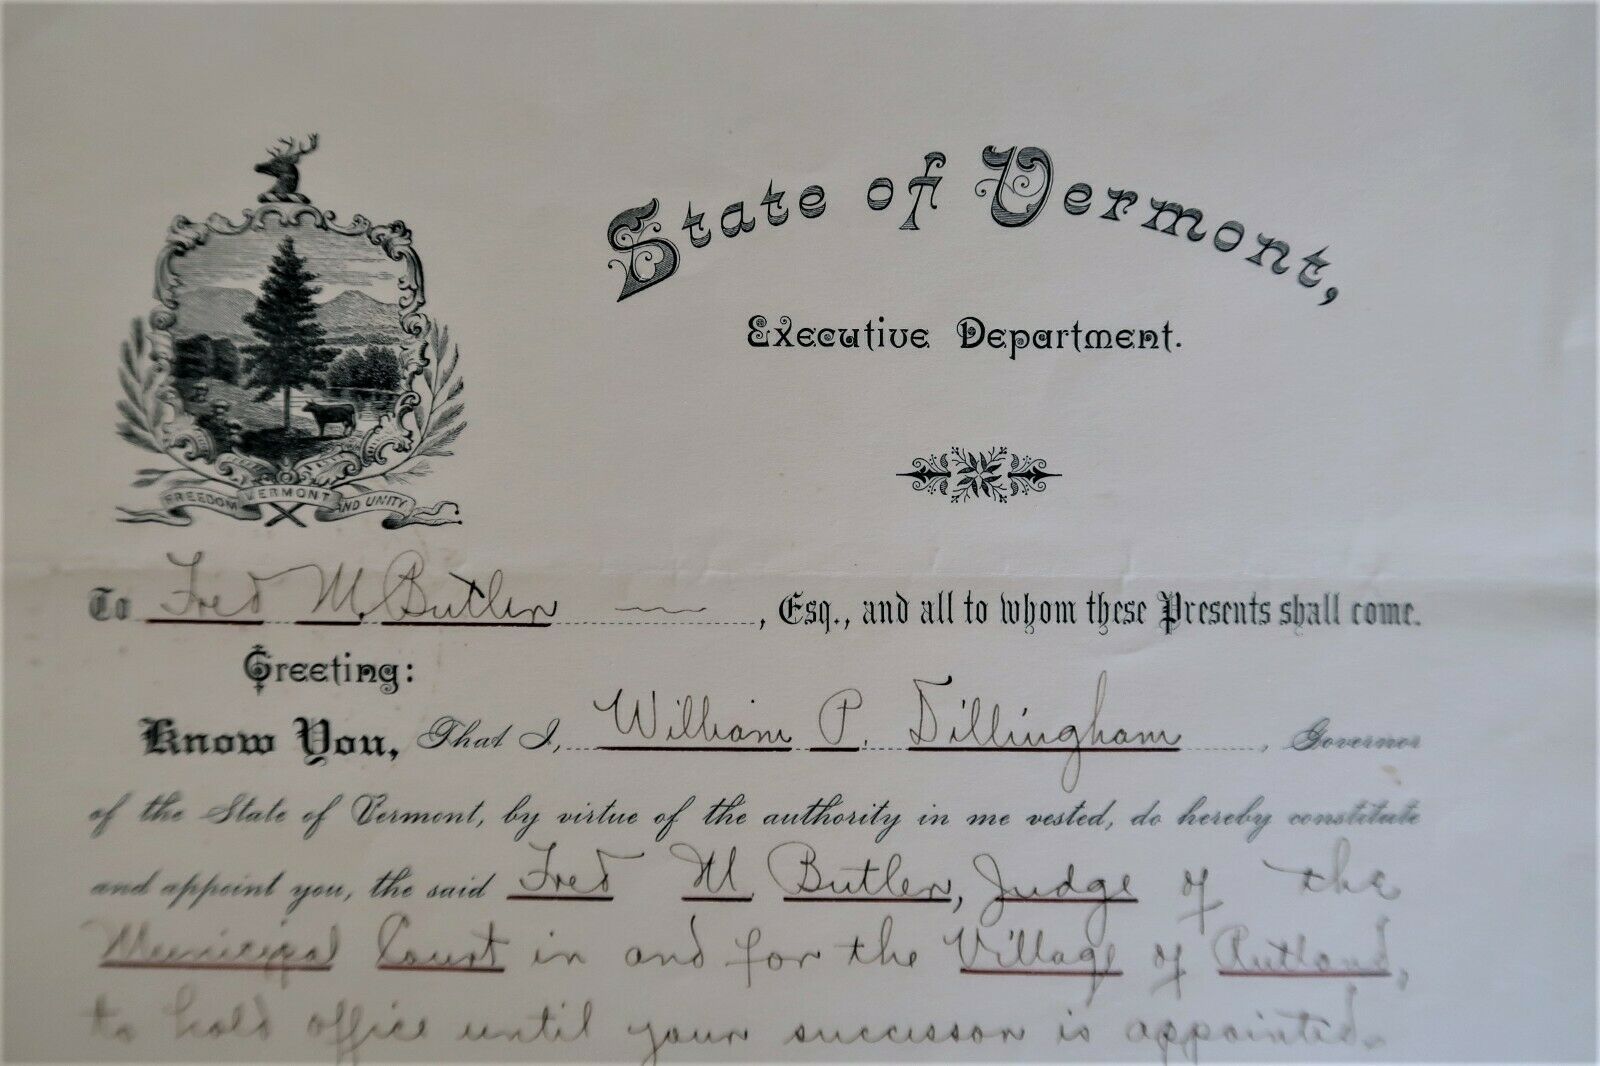 State of Vermont,
Executive Department.
FREEDOM VERMONT AND UNITY
To Fred M. Butler, Esq., and all to whom these Presents shall come.
Greeting:
Know You, That I, William P. Dillingham, Governor
of the State of Vermont, by virtue of the authority in me vested, do hereby constitute
and appoint you, the said Fred M Butler, Judge of the
Municipal Court in and for the Village of Rutland,
to hold office until your successor is appointed.